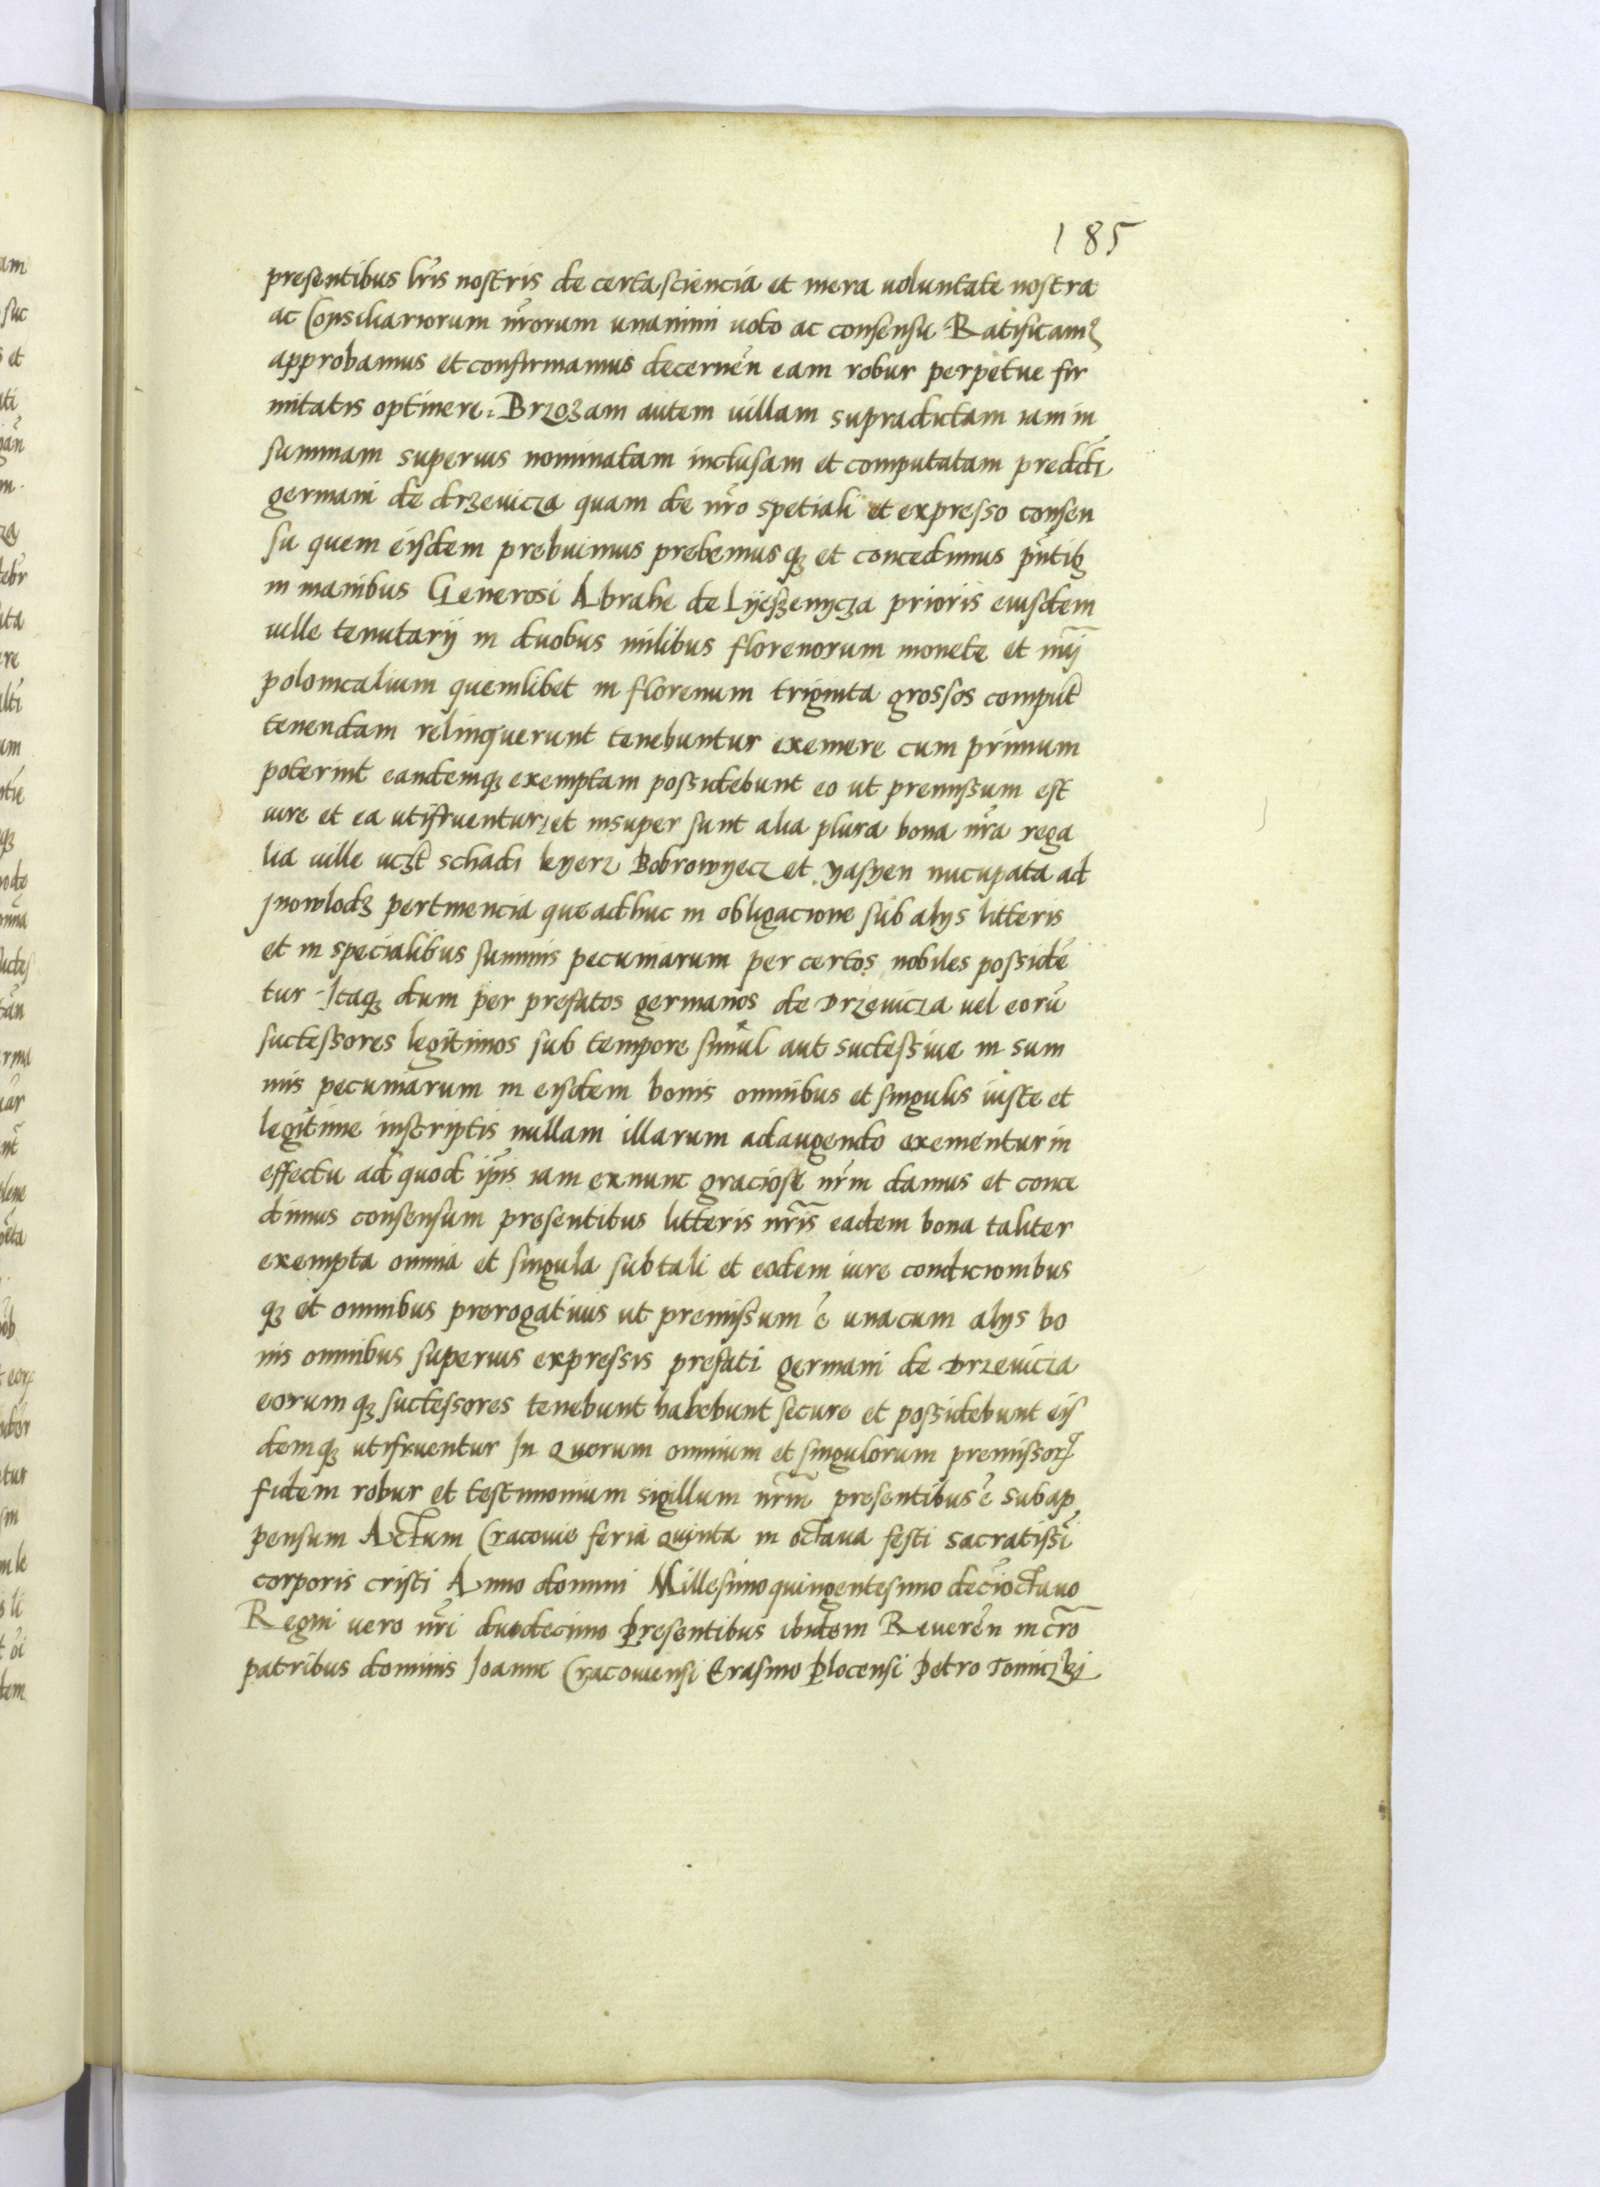 185
presentibus lr̃is nostris de certa sciencia et mera voluntate nostra
ac Consiliariorum nr̃orum unanimi voto ac consensu Ratificamꝰ
approbamus et confirmamus decernen̄ eam robur perpetue fir
mitatis optinere. Brzozam autem villam supradictam iam in
summam superius nominatam inclusam et computatam preddi
germani de drzevicza quam de nr̃o spetiali et expresso consen
su quem eisdem prebuimus prebemusqꝫ et concedimus pn̄tibꝫ
in manibus Generosi Abrahe de prioris eiusdem
ville tenutarij in duobus milibus florenorum monete et nūi
polonicalium quemlibet in florenum triginta grossos comput̃
tenendam relinquerunt tenebuntur exemere cum primum
poterint eandemqꝫ exemptam possidebunt eo ut premissum est
iure et ea utifruentur et insuper sunt alia plura bona nr̃a rega
lia ville vczt schadi kyerz Bobrowyecz et yasyen nucupata ad
Jnowlodz pertinencia que adhuc in obligacione sub alys litteris
et in specialibus summis pecuniarum per certos nobiles possidē
tur Itaqꝫ dum per prefatos germanos de Drzevicza vel eorū
suctessores legitimos sub tempore simul aut suctessive in sum
mis pecuniarum in eisdem bonis omnibus et singulis iuste et
legitime inscriptis nullam illarum adaugendo exementur in
effectu ad quod ip̄is iam exnunc graciose nr̃m damus et conce
dimus consensum presentibus litteris nr̃is eadem bona taliter
exempta omnia et singula sub tali et eodem iure condicionibus
qꝫ et omnibus prerogativis ut premissum ē unacum alys bo
nis omnibus superius expressis prefati germani de Drzevicza
eorumqꝫ suctessores tenebunt habebunt secure et possidebunt eis
demqꝫ utifruentur In Quorum omnium et singulorum premissorꝝ
fidem robur et testimonium sigillum nr̃m presentibus ē subap
pensum Actum Cracovie feria quinta in octava festi sacratissi̅
corporis cristi Anno domini Millesimo quingentesimo decīoctavo
Regni vero nr̃i duodecimo presentibus ibidem Reveren̄ in cr̃o
patribus dominis Joanne Cracoviensi Erasmo Plocensi Petro Tomiczki